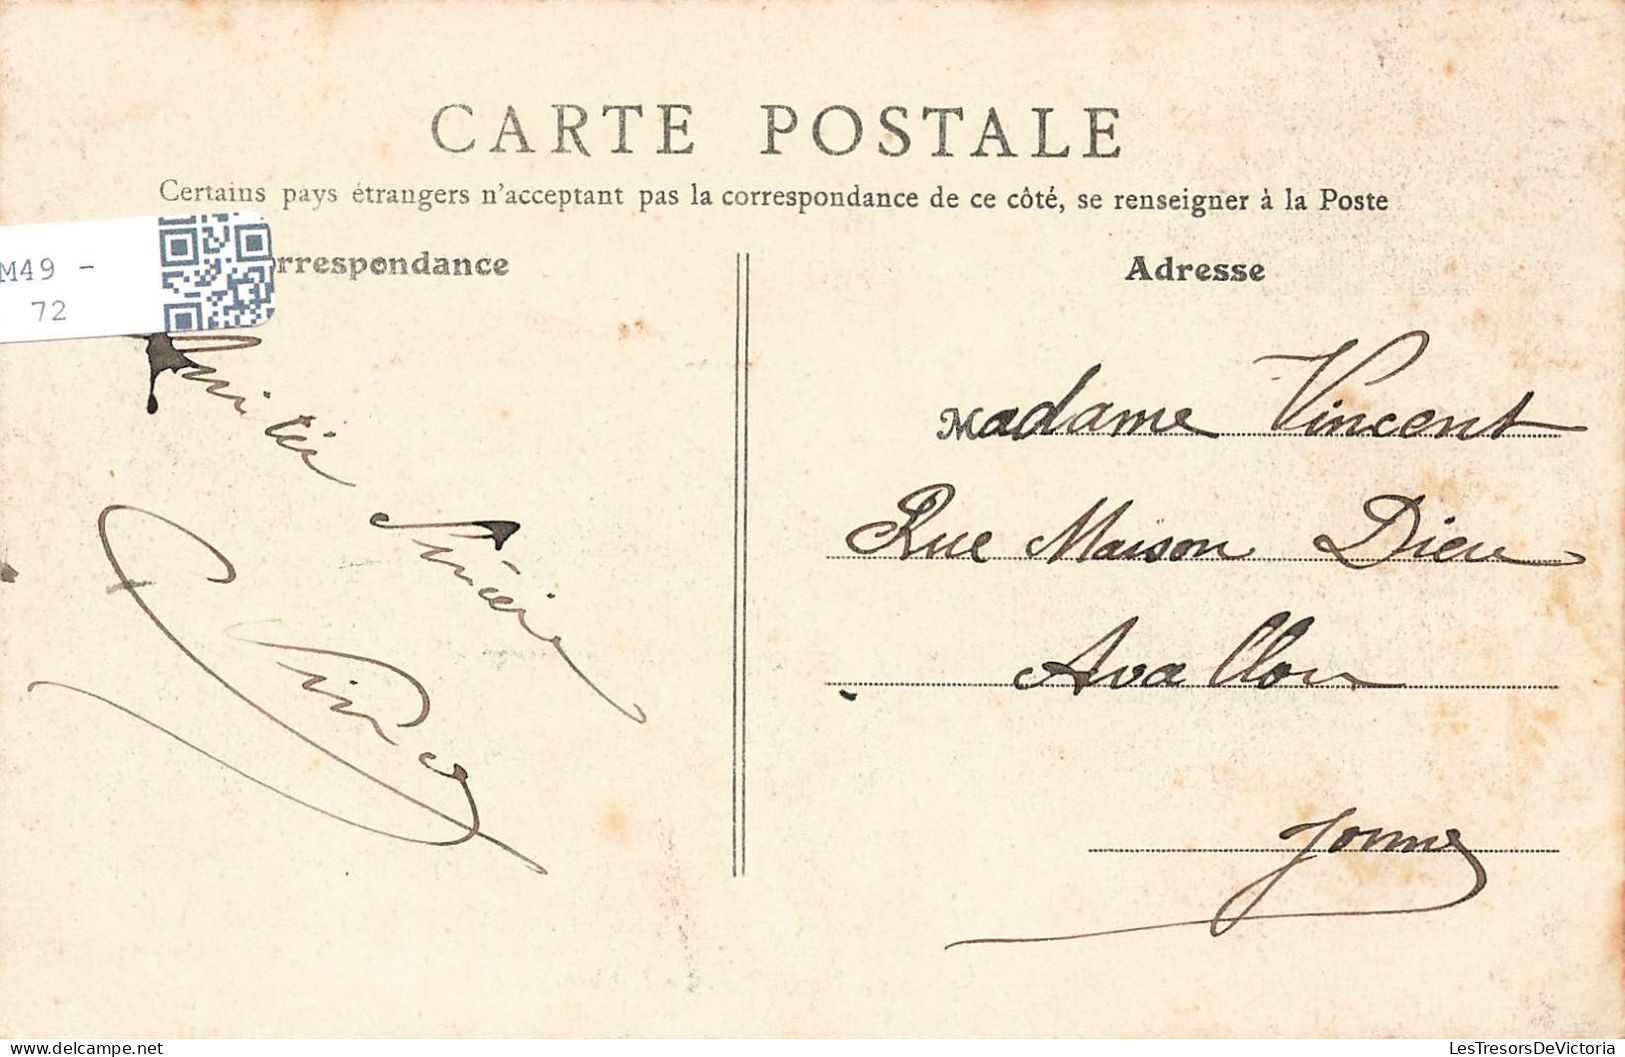 CARTE POSTALE
Certains pays étrangers n'acceptent pas la correspondance de ce côté, se renseigner à la Poste
M49 -
72
orrespondance
Amitiés
Sincères
Adresse
Madame Vincent
Rue Maison Dieu
Avallon
Yonne
LesTresorsDeVictoria